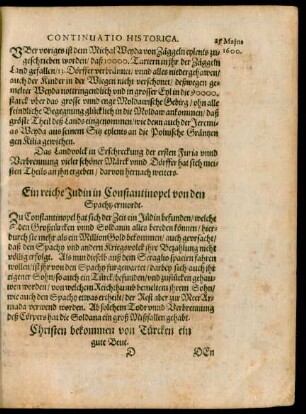 CONTINVATIO HISTORICA.
25 Majus
1600.
VBer voriges ist dem Michal Weyda von Zäggeln eylents zu-
geschrieben worden / daß 10000. Tartern in ihr der Zäggeln
Land gefallen / 13. Dörffer verbrännet / vnnd alles niedergehawen /
auch der Kinder in der Wiegen nicht verschonet / deßwegen ge-
melter Weyda nottringendlich vnd in grosser Eyl in die 90000.
starck vber das grosse vnnd enge Moldawische Gebirg / ohn alle
feindliche Begegnung glücklich in die Moldaw ankommen / daß
gröste Theil deß Lands eingenommen / vnd den auch der Jeremias
Weyda auß seinem Sitz eylents an die Polnische Gräntzen
gen Kilia gewichen.
Das Landvolck in Erschreckung der ersten Furia vnnd
Verbrennung vieler schöner Märck vnnd Dörffer hat sich mei-
sten Theils an ihn ergeben / darvon hernach weiters.
Ein reiche Jüdin in Constantinopel von den
Spachy ermordt.
ZU Constantinopel hat sich der Zeit ein Jüdin befunden / welche
den Großtürcken vnnd Soldanin alles bereden können / hier-
durch sie mehr als ein Million Gold bekommen / auch gevrsacht /
daß den Spachy vnd andern Kriegsvolck ihre Bezahlung nicht
völlig erfolgt. Als nun dieselb auß dem Seraglio spacieren fahren
wollen / ist ihr von den Spachy fürgewartet / darbey sich auch ihr
eigener Sohn / so auch ein Türck befunden / vnd zustücken gehawen
worden / von welchem Reichthumb bemeltem ihrem Sohn /
wie auch den Spachy etwas ertheilt / der Rest aber zur Meer Ar-
mada verwend worden. Ab solchem Todt vnnd Verbrennung
deß Cörpers hat die Soldana ein groß Mißfallen gehabt.
Christen bekommen von Türcken ein
gute Beut.
D
DEn